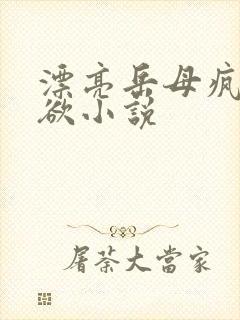 漂亮岳母疯
欲小説
屠荼大當家